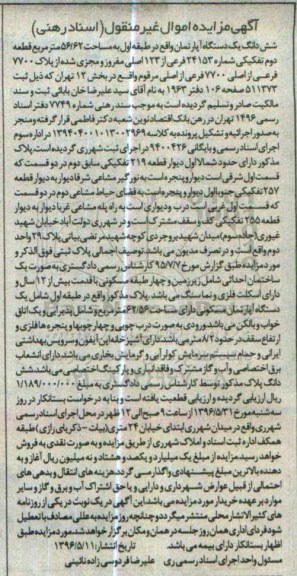 آگهی مزایده اموال غیر منقول (اسناد رهنی)
شش دانگ یک دستگاه آپارتمان واقع در طبقه اول به مساحت ۵۶/۶۲ متر مربع قطعه
دوم تفکیکی شماره ۲۴۱۵۳ فرعی از ۱۲۳ اصلی مفروز و مجزی شده از پلاک ۷۷۰۰
فرعی از اصلی ۷۷۰۰ فرعی از اصلی مرقوم واقع در بخش ۱۲ تهران که ذیل ثبت
۵۱۱۳۷۳ صفحه ۱۰۶ دفتر ۱۹۶۳ به نام آقای سید علیرضا خان بابائی ثبت و سند
مالکیت صادر و تسلیم گردیده است به موجب سند رهنی شماره ۷۷۴۹ دفتر اسناد
رسمی ۱۴۹۶ تهران در رهن بانک اقتصاد نوین شعبه دکتر فاطمی قرار گرفته و منجر
به صدور اجرائیه و تشکیل پرونده به کلاسه ۱۳۹۴۰۴۰۰۱۰۱۳۰۰۲۹۶۹ در اداره سوم
اجرای اسناد رسمی و بایگانی ۹۴۰۰۴۲۶ در اجرای ثبت شهرری گردیده است. پلاک
مذکور دارای حدود شمالا اول دیوار قطعه ۲۱۹ تفکیکی سابق دوم در دو قسمت که
قسمت اول شرقی است دیوار و پنجره است به نورگیر مشاعی شرقا دیوار به دیوار قطعه
۲۵۷ تفکیکی جنوبا اول دیوار و پنجره است به فضای حیاط مشاعی دوم در دو قسمت
که قسمت اول غربی است درب و دیواری است به راه پله مشاعی غربا دیوار به دیوار
قطعه ۲۵۵ تفکیکی کف و سقف مشترک است و در شهرری دولت آباد خیابان شهید
غیوری (جاده سوم) میدان شهید بروجردی کوچه شهید مرتضی بیاتی پلاک ۲۹ واحد
دوم واقع است و در تصرف مدیون می باشد. توصیف اجمالی پلاک ثبتی فوق الذکر و
مورد مزایده طبق گزارش مورخ ۹۵/۷/۷ کارشناس رسمی دادگستری به صورت یک
ساختمان احداثی شامل زیرزمین و چهار طبقه مسکونی با قدمت بیش از ۱۲ سال و
دارای اسکلت فلزی و نما سنگ می باشد. پلاک مذکور واقع در طبقه اول شامل یک
دستگاه آپارتمان مسکونی دارای مساحت ۶۲/۵۶ مترمربع و شامل پذیرایی و یک اتاق
خواب و بالکن می باشد. ورودی به صورت درب چوبی و چهارچوبها و پنجره ها فلزی و
ارتفاع سقف در حدود ۲/۸ متر می باشد. دارای آشپزخانه اپن آیفون و سرویس بهداشتی
ایرانی و حمام سیستم سرمایش کولر آبی و گرمایش بخاری می باشد. دارای انشعاب
برق اختصاصی و آب و گاز مشترک و فاقد انباری و پارکینگ اختصاصی می باشد. شش
دانگ پلاک مذکور توسط کارشناس رسمی دادگستری به مبلغ ۱/۱۸۹/۰۰۰/۰۰۰
ریال ارزیابی گردیده و ارزیابی قطعیت یافته است و بنا به درخواست بستانکار در روز
سه شنبه مورخ ۱۳۹۶/۵/۳۱ از ساعت ۹ صبح الی ۱۲ ظهر در محل اجرای اسناد رسمی
شهرری واقع در میدان شهرری ابتدای خیابان ۲۴ متری (بیات -ذکریای رازی) طبقه
همکف اداره ثبت اسناد و املاک شهرری از طریق مزایده و به صورت نقدی به فروش
خواهد رسید مزایده از مبلغ یک میلیارد و یکصد و هشتاد و نه میلیون ریال آغاز و به
دهنده بالاترین مبلغ پیشنهادی واگذار می گردد هزینه های انتقال و بدهی های
احتمالی از قبیل عوارض شهرداری و دارایی و یا حق اشتراک آب و برق و گاز و سایر
موارد بر عهده خریدار مورد مزایده می باشد این آگهی در یک نوبت در یکی از روزنامه
های کثیرالانتشار محلی منتشر میگردد و چنانچه روز مزایده به عللی مصادف با تعطیل
شود فردای اداری همان روز جلسه در همان ومکان برگزار خواهد شد. مورد مزایده طبق
اظهار بستانکار دارای بیمه می باشد تاریخ انتشار: ۱۳۹۶/۵/۱۱
مسئول واحد اجرای اسناد رسمی ری علیرضا فردوسی زاده نائینی